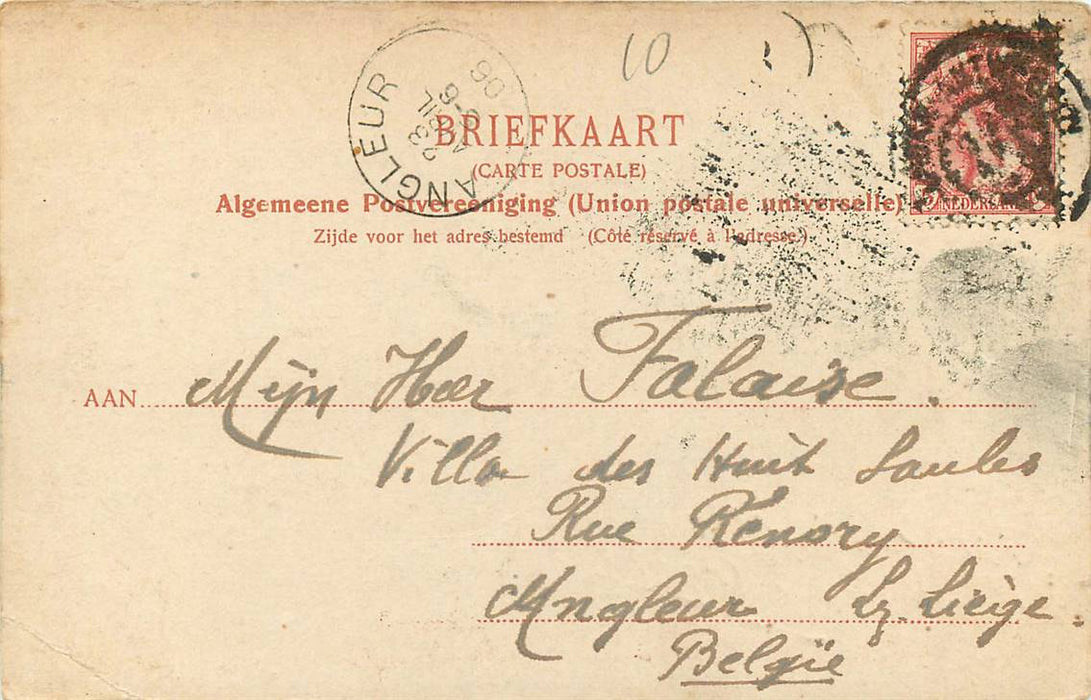 10
ANGLEUR
23
JUIL
6-
06
BRIEFKAART
(CARTE POSTALE)
Algemeene Postvereeniging (Union postale universelle)
Zijde voor het adres bestemd (Côté réservé à l'adresse.)
NEDERLAND
AAN Mijn Heer Falaise.
Villa des Huit Saules
Rue Rénory
Angleur Lz. Liège.
België